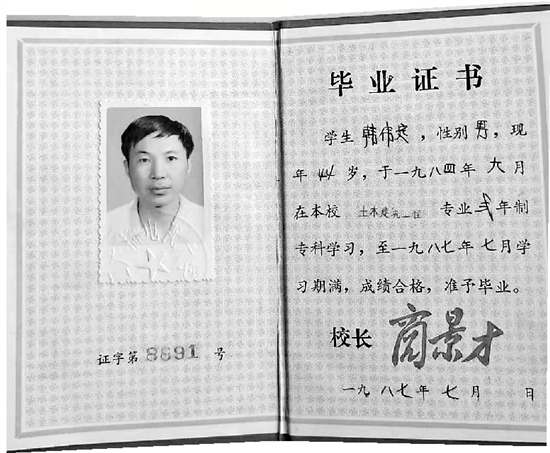 证字第 8691 号
毕业证书
学生 韩伟 ，性别 男，现
年 44 岁，于一九八四年 九 月
在本校 土木建筑工程 专业 年制
专科学习，至一九八七年 七月学
习期满，成绩合格，准予毕业。
校长 商景才
一九八七年 七 月 日